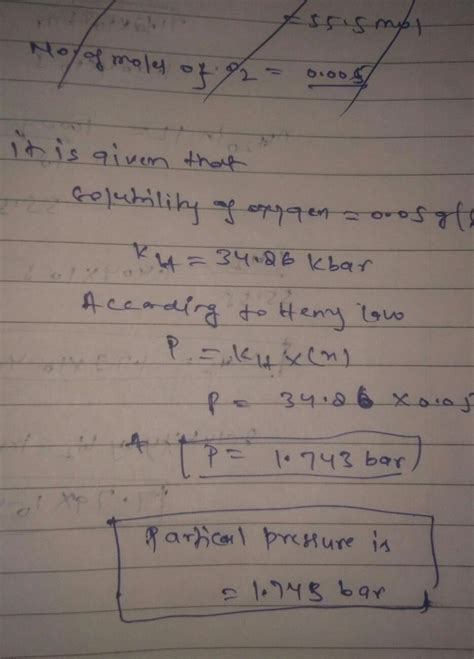 = 55.5 mol
No. of moles of O2 = 0.005
it is given that
solubility of oxygen = 0.05 g(
KH = 34.86 kbar
According to Henry law
P = KH x(n)
P = 34.86 x 0.05
P = 1.743 bar
Partical pressure is
= 1.743 bar